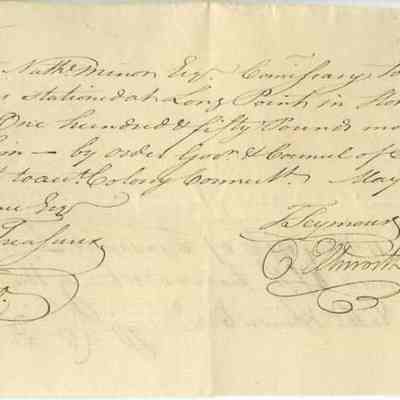 Nathl. Minor Esqr. Comissary to
stationed at Long Point in Ston
One hundred & fifty Pounds mo
ion — by order Govr. & Councel of
to accot. Colony Connectt. May
Esqr
Treasurer
T Seymour
Ellsworth